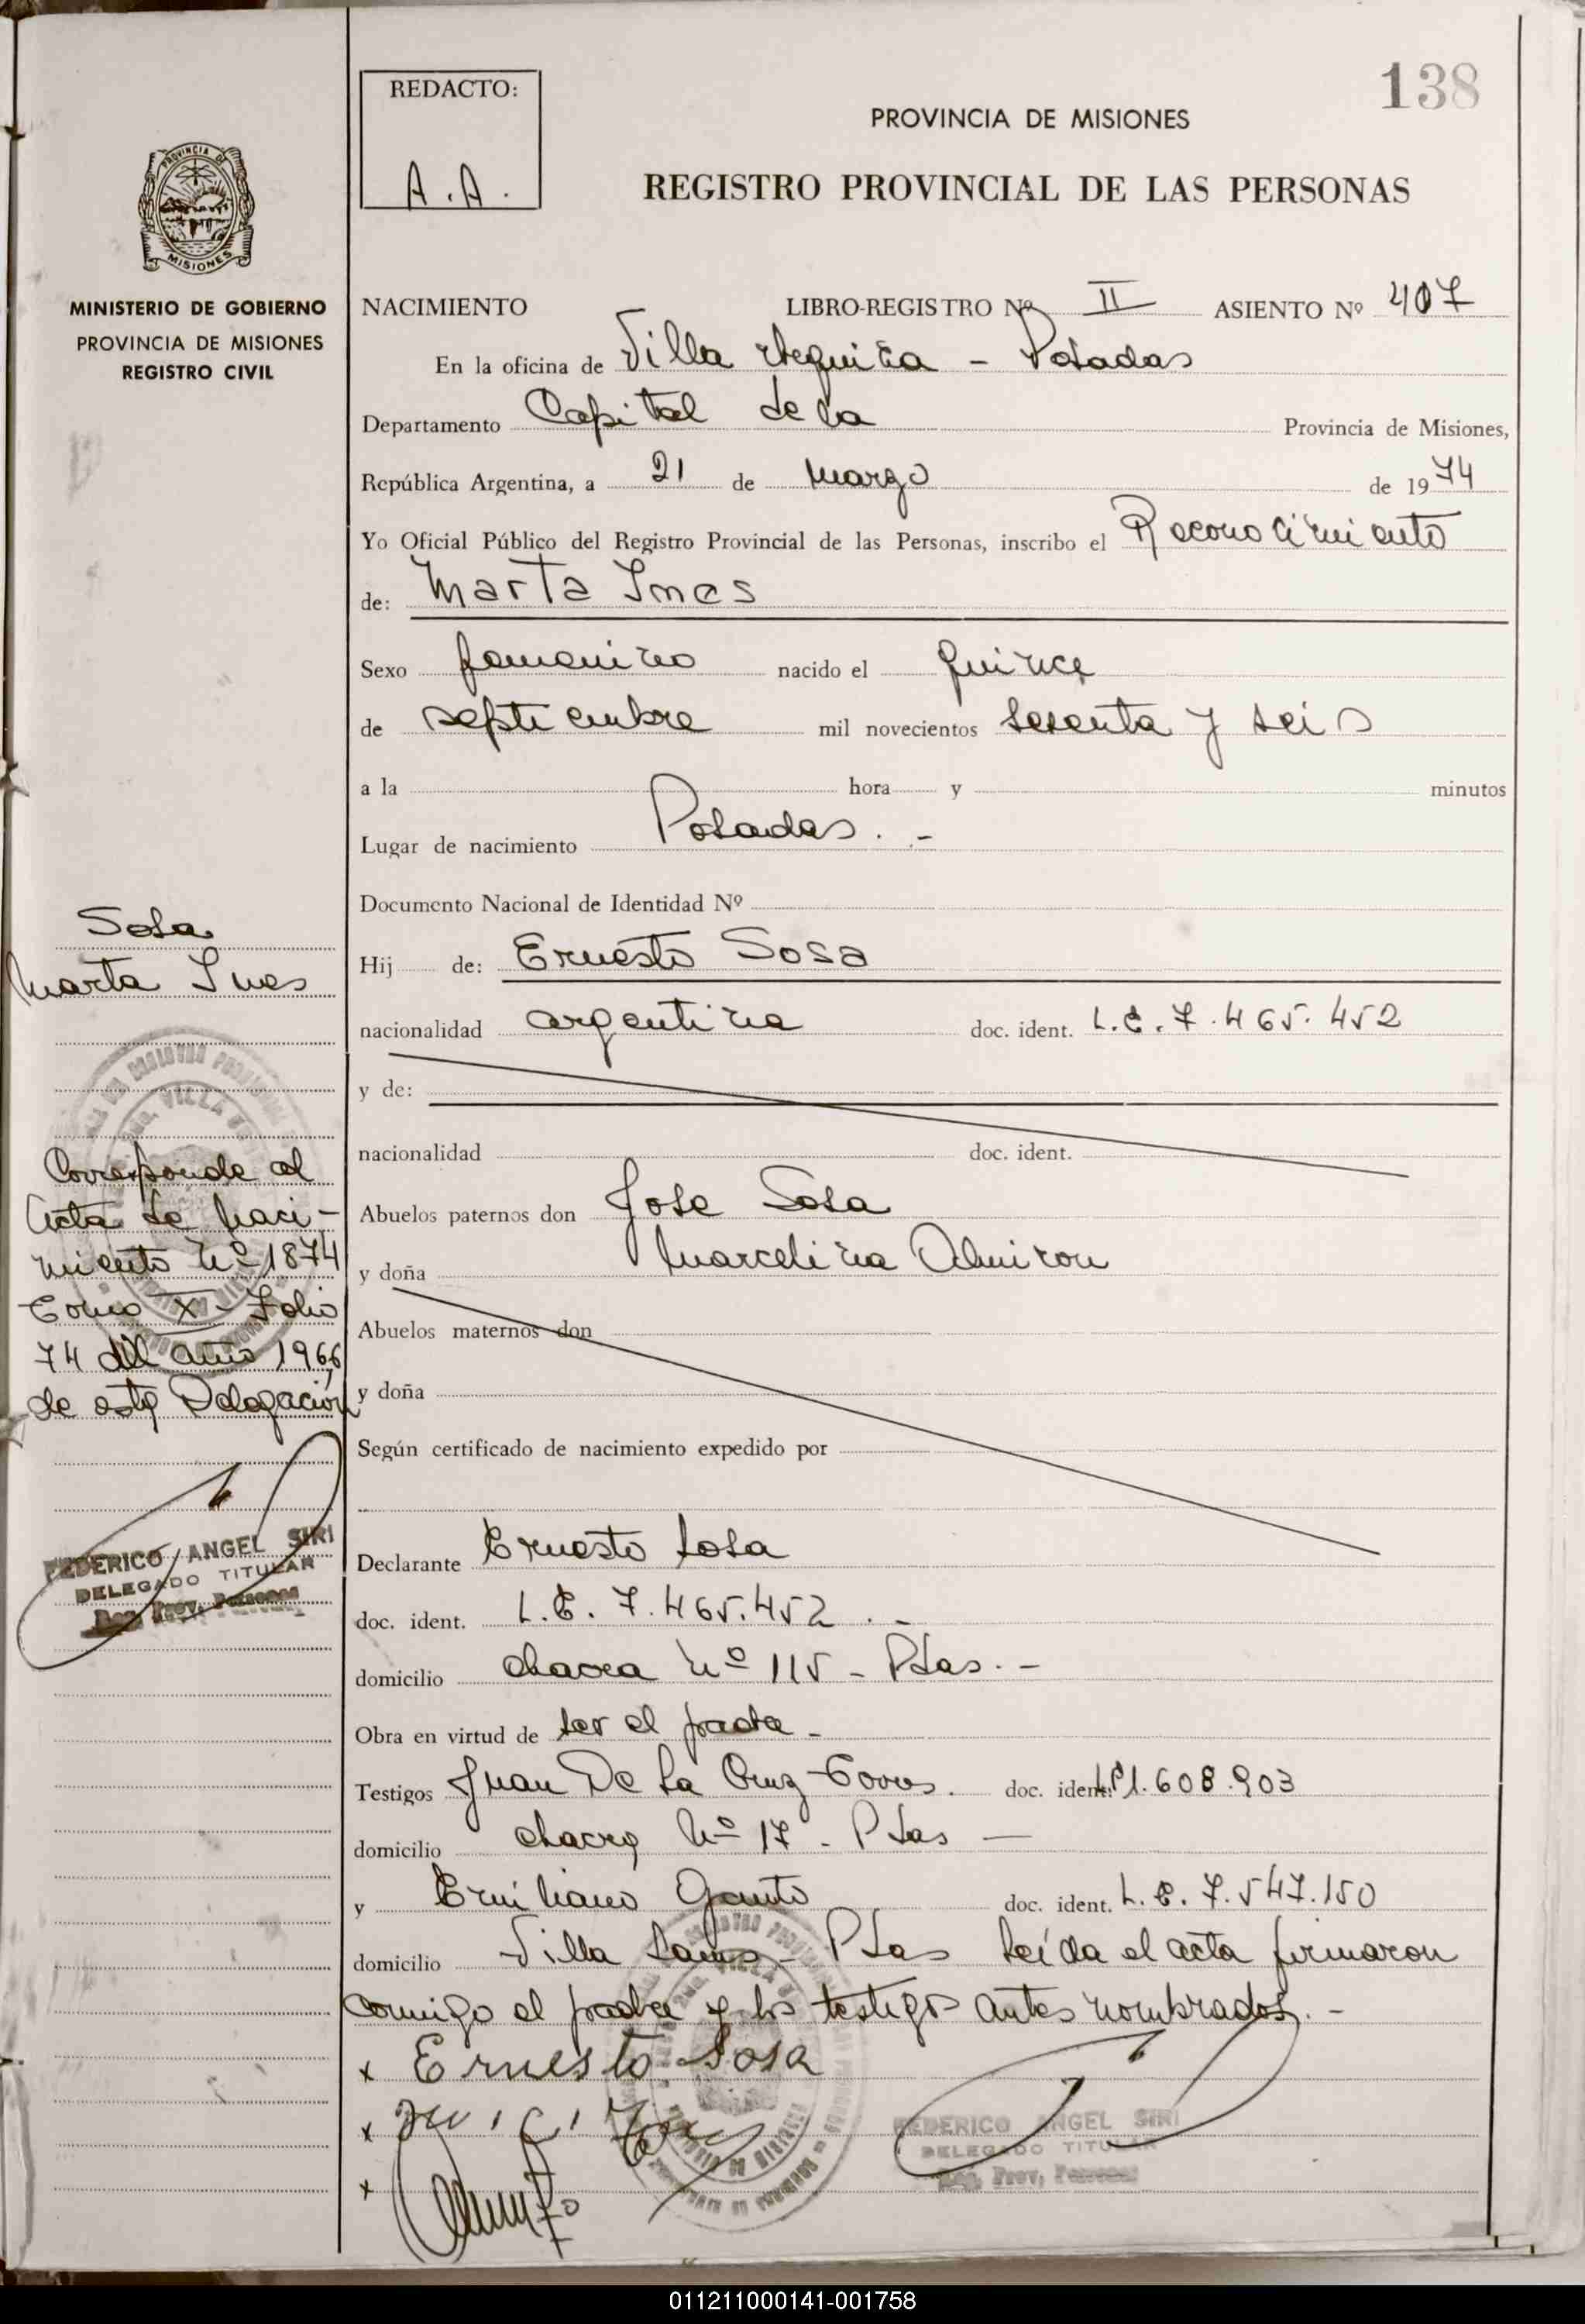 138
REDACTO:
A.A.
PROVINCIA DE MISIONES
REGISTRO PROVINCIAL DE LAS PERSONAS
PROVINCIA DE
MISIONES
MINISTERIO DE GOBIERNO
PROVINCIA DE MISIONES
REGISTRO CIVIL
NACIMIENTO LIBRO-REGISTRO Nº II ASIENTO Nº 407
En la oficina de Villa - Posadas
Departamento Capital de la Provincia de Misiones,
República Argentina, a 21 de Marzo de 1974
Yo Oficial Público del Registro Provincial de las Personas, inscribo el Reconocimiento
de: Marta Ines
Sexo femenino nacido el quince
de septiembre mil novecientos sesenta y seis
a la hora y minutos
Lugar de nacimiento Posadas.-
Documento Nacional de Identidad Nº
Hij de: Ernesto Sosa
nacionalidad argentina doc. ident. L.E. 7.465.452
y de:
nacionalidad doc. ident.
Abuelos paternos don Jose Sosa
y doña Marcelina Almiron
Abuelos maternos don
y doña
Según certificado de nacimiento expedido por
Declarante Ernesto Sosa
doc. ident. L.E. 7.465.452.-
domicilio chacra Nº 115 - Pdas.-
Obra en virtud de ser el padre-
Testigos Juan De La Cruz Torres. doc. ident. 1.608.903
domicilio chacra Nº 17 - Pdas -
y Emiliano doc. ident. L.E. 7.547.150
domicilio Villa - Pdas leída el acta firmaron
conmigo el padre y los testigos antes nombrados.-
x Ernesto Sosa
x
x
FEDERICO ANGEL SIRI
DELEGADO TITULAR
Reg. Prov. Personas
Sosa
Marta Ines
Corresponde al
Acta de Naci-
miento Nº 1874
Tomo X - Folio
74 del año 1966,
de esta Delegación
FEDERICO ANGEL SIRI
DELEGADO TITULAR
Reg. Prov. Personas
011211000141-001758